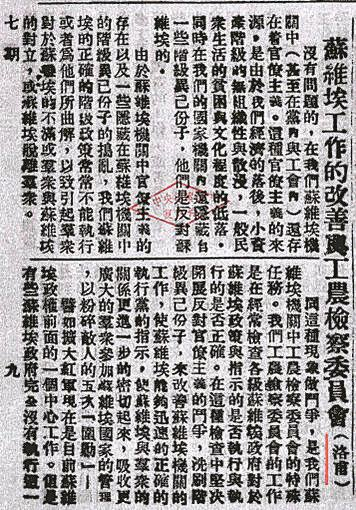 蘇維埃工作的改善與工農檢察委員會(洛甫)
沒有問題的,在我們蘇維埃機
關中(甚至在黨內與工會內)還存
在着官僚主義。這種官僚主義的來
源,是由於我們經濟的落後,小資
產階級的無組織性與散漫,一般民
衆生活的貧困與文化程度的低落。
同時在我們的國家機關內還隱藏着
一些階級異己份子,他們是反對蘇
維埃的。
由於蘇維埃機關中官僚主義的
存在以及一些隱藏在蘇維埃機關中
的階級異己份子的搗亂,我們蘇維
埃的正確的階級政策常常不能執行
或者為他們所曲解,以致引起羣衆
對於蘇維埃的不滿或羣衆與蘇維埃
的對立,或蘇維埃脫離羣衆。
同這種現象做鬥爭,是我們蘇
維埃機關中工農檢察委員會的特殊
任務。我們工農檢察委員會的工作
是在經常檢查各級蘇維埃政府對於
蘇維埃政策與指示的是否執行與執
行的是否正確。在這種檢查中堅决
開展反對官僚主義的鬥爭,洗刷階
級異己份子,來改善蘇維埃機關的
工作,使蘇維埃能夠迅速的正確的
執行黨的指示,使蘇維埃與羣衆的
關係更進一步的密切起來,吸收更
廣大的羣衆參加蘇維埃國家的管理
,以粉碎敵人的五次「圍剿」!
譬如擴大紅軍現在是目前蘇維
埃政權前面的一個中心工作。但是
有些蘇維埃政府完全沒有執行這一
七期
九